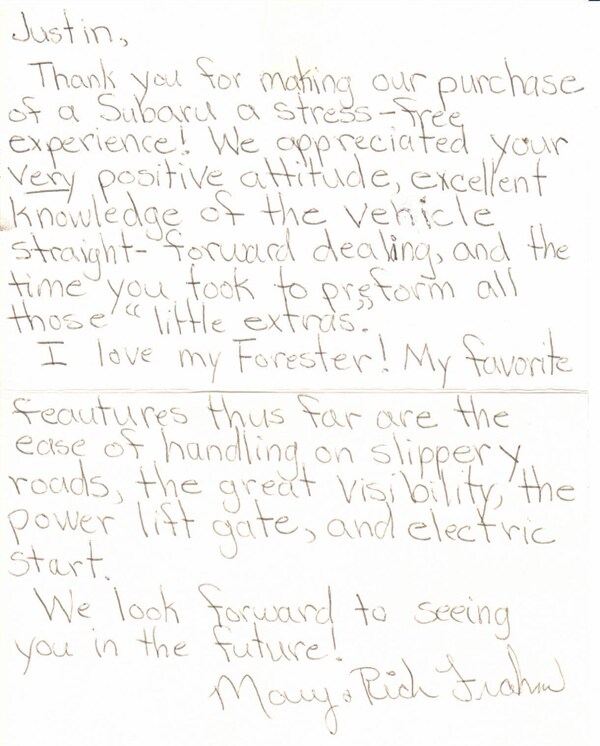 Justin,
Thank you for making our purchase
of a Subaru a stress-free
experience! We appreciated your
very positive attitude, excellent
knowledge of the vehicle
straight-forward dealing, and the
time you took to preform all
those "little extras."
I love my Forester! My favorite
feautures thus far are the
ease of handling on slippery
roads, the great visibility, the
power lift gate, and electric
start.
We look forward to seeing
you in the future!
Mary & Rich